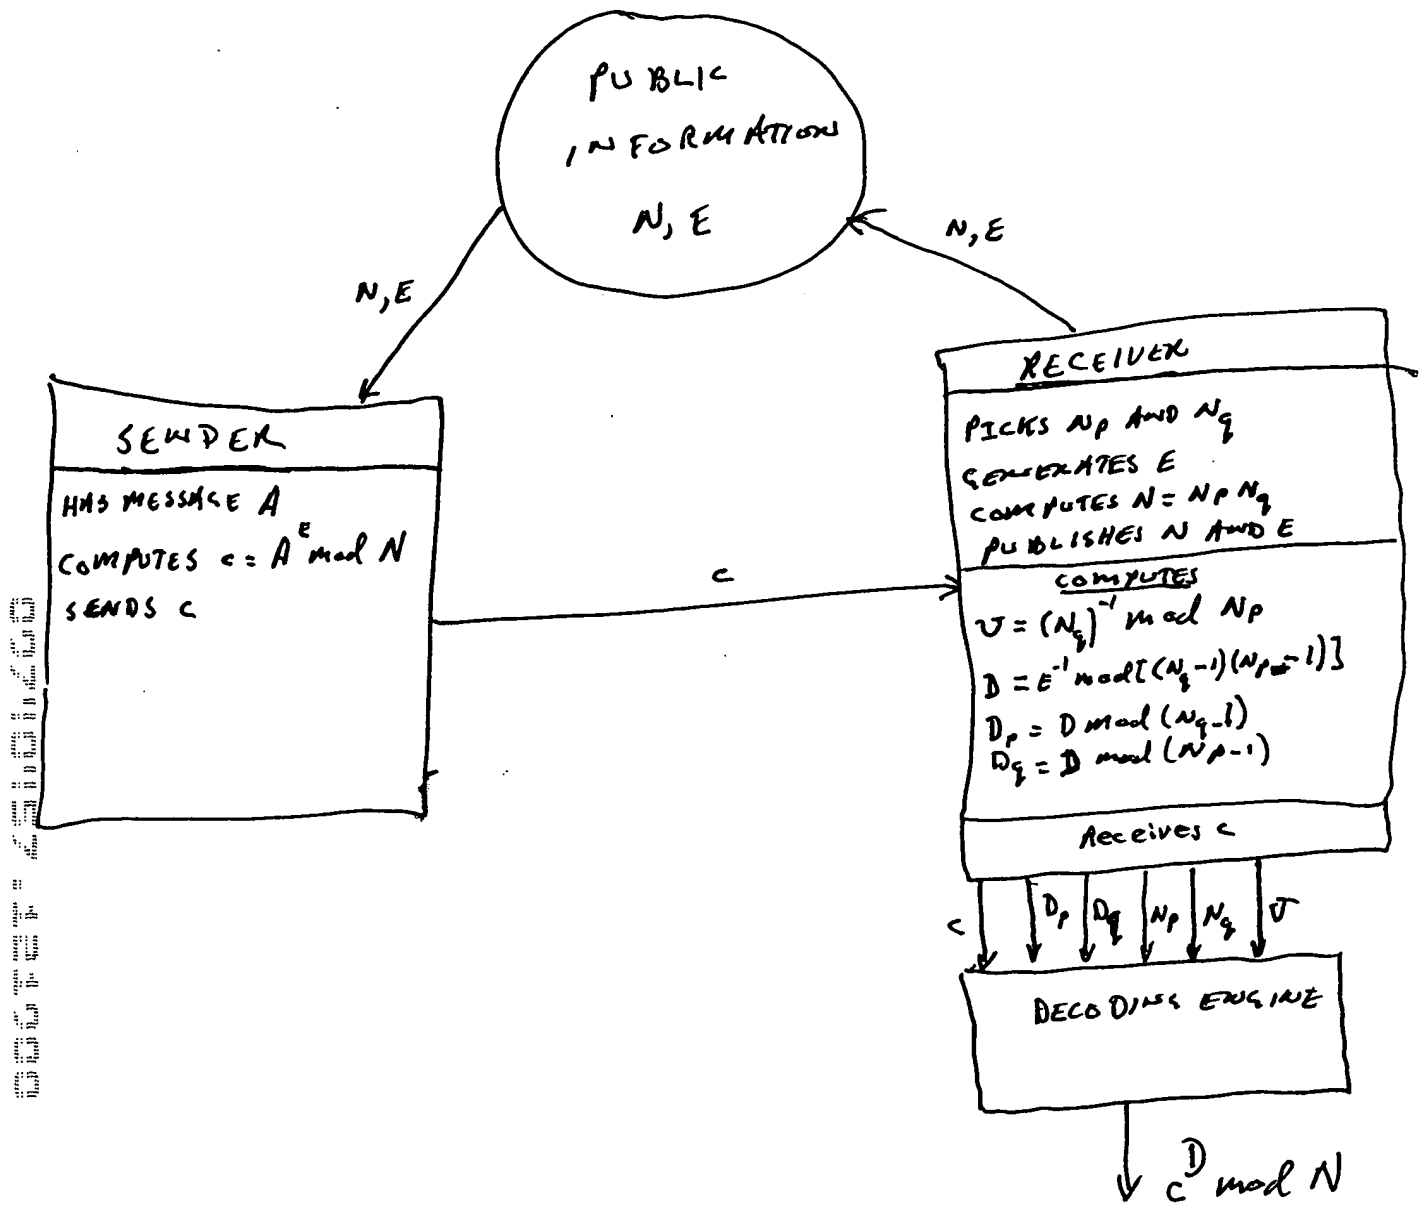 PUBLIC
INFORMATION
N, E
N, E
N, E
SENDER
HAS MESSAGE A
COMPUTES c = A^E mod N
SENDS C
C
RECEIVER
PICKS Np AND Nq
GENERATES E
COMPUTES N = Np Nq
PUBLISHES N AND E
COMPUTES
U = (Nq)^-1 mod Np
D = E^-1 mod [(Nq-1)(Np-1)]
Dp = D mod (Nq-1)
Dq = D mod (Np-1)
Receives C
C Dp Dq Np Nq U
DECODING ENGINE
C^D mod N